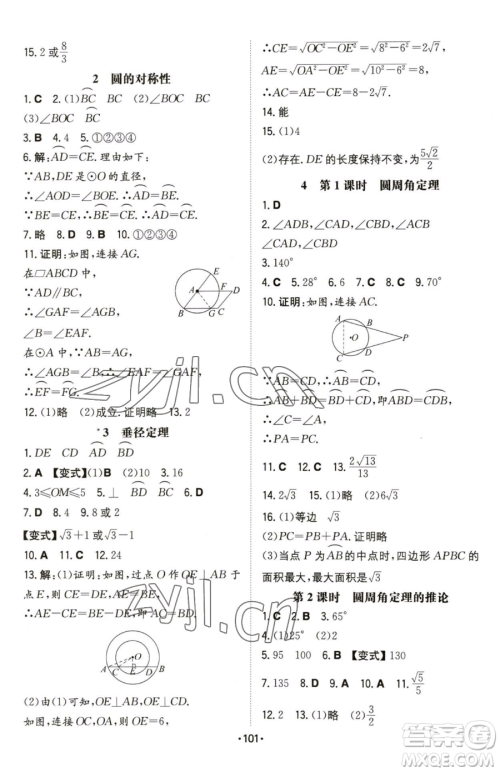 15.2或8/3
2 圆的对称性
1.C 2.(1)BC BC (2)∠BOC
(3)∠BOC
3.B 4.4 5.①②③④
6.解:AD=CE.理由如下:
∵AB,DE是⊙O的直径,
∴∠AOD=∠BOE.∴AD=BE.
∵BE=CE,∴BE=CE.∴AD=CE.
7.略 8.D 9.B 10.①②③④
11.证明:如图,连接AG.
在□ABCD中,
∵AD∥BC,
∴∠GAF=∠AGB,
∠B=∠EAF.
在⊙A中,∵AB=AG,
∴∠AGB=∠B.∴∠EAF=∠GAF.
∴EF=FG.∴EF=FG.
12.(1)略 (2)成立.证明略 13.2
*3 垂径定理
1.DE CD AD BD
2.A 【变式】(1)B (2)10 3.16
4.3≤OM≤5 5.⊥ BD BC BD
7.D 8.D 9.8或2
【变式】√3+1或√3-1
10.A 11.C 12.24
13.解:(1)证明:如图,过点O作OE⊥AB于
点E,则CE=DE,AE=BE,
∴AE-CE=BE-DE,即AC=BD.
(2)由(1)可知,OE⊥AB,OE⊥CD,
连接OC,OA,则OE=6,
∴CE=√(OC²-OE²)=√(8²-6²)=2√7,
AE=√(OA²-OE²)=√(10²-6²)=8.
∴AC=AE-CE=8-2√7.
14.能
15.(1)4
(2)存在.DE的长度保持不变,为5√2/2
4 第1课时 圆周角定理
1.D
2.∠ADB,∠ACB ∠BAC ∠ACB
∠CAD,∠CBD ∠CAD
3.140°
4.C 5.28° 6.D 7.B 8.C 9.70°
10.证明:如图,连接AC.
∵AB=CD,∴AB=CD.
∴AB+BD=CD+BD,即AD=CB.
∴∠C=∠A.
∴PA=PC.
11.C 12.C 13.2√13/13
14.2√3 15.(1)略 (2)6√3
16.(1)等边 √3
(2)PC=PB+PA.证明略
(3)当点P为AB的中点时,四边形APBC的
面积最大,最大面积为√3
第2课时 圆周角定理的推论
1.C 2.B 3.65°
4.(1)25° (2)3
5.95 100 6.B 【变式】130
7.135 8.D 9.D 10.A 11.√5/5
12.2 13.(1)略 (2)3/2
·101·
zyjl.cn
zyjl.cn